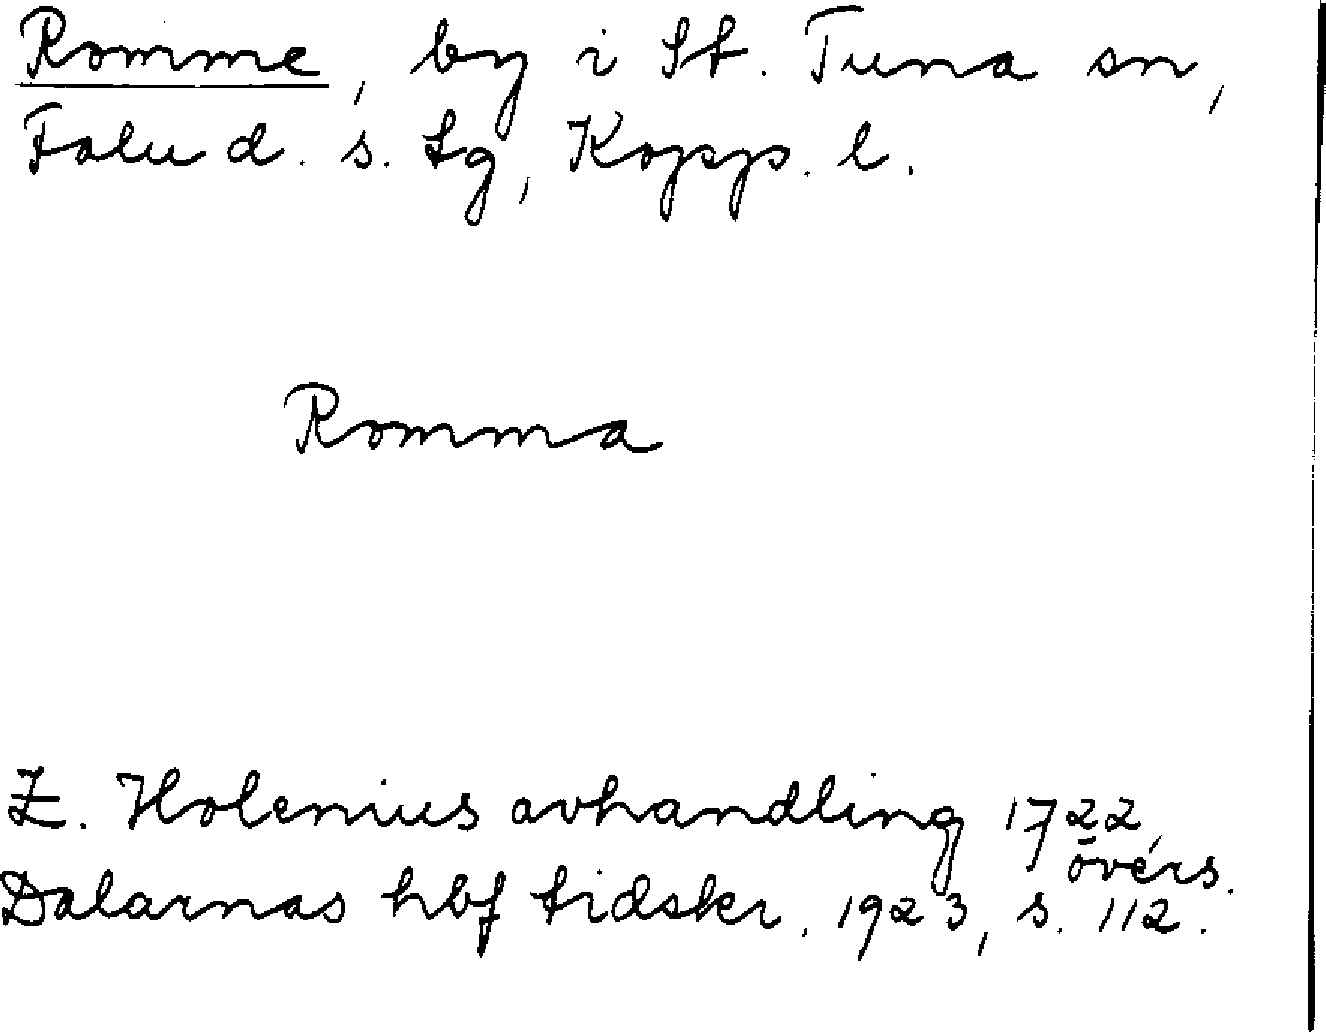 Romme, by i St. Tuna sn,
Falu d. s. tg, Kopp. l.
Romma
Z. Holenius avhandling 1722,
övers.
Dalarnas hbf tidskr. 1923, s. 112.